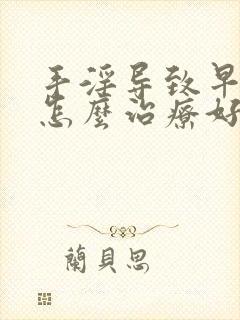 手淫导致早
怎麽治療好
蘭貝思